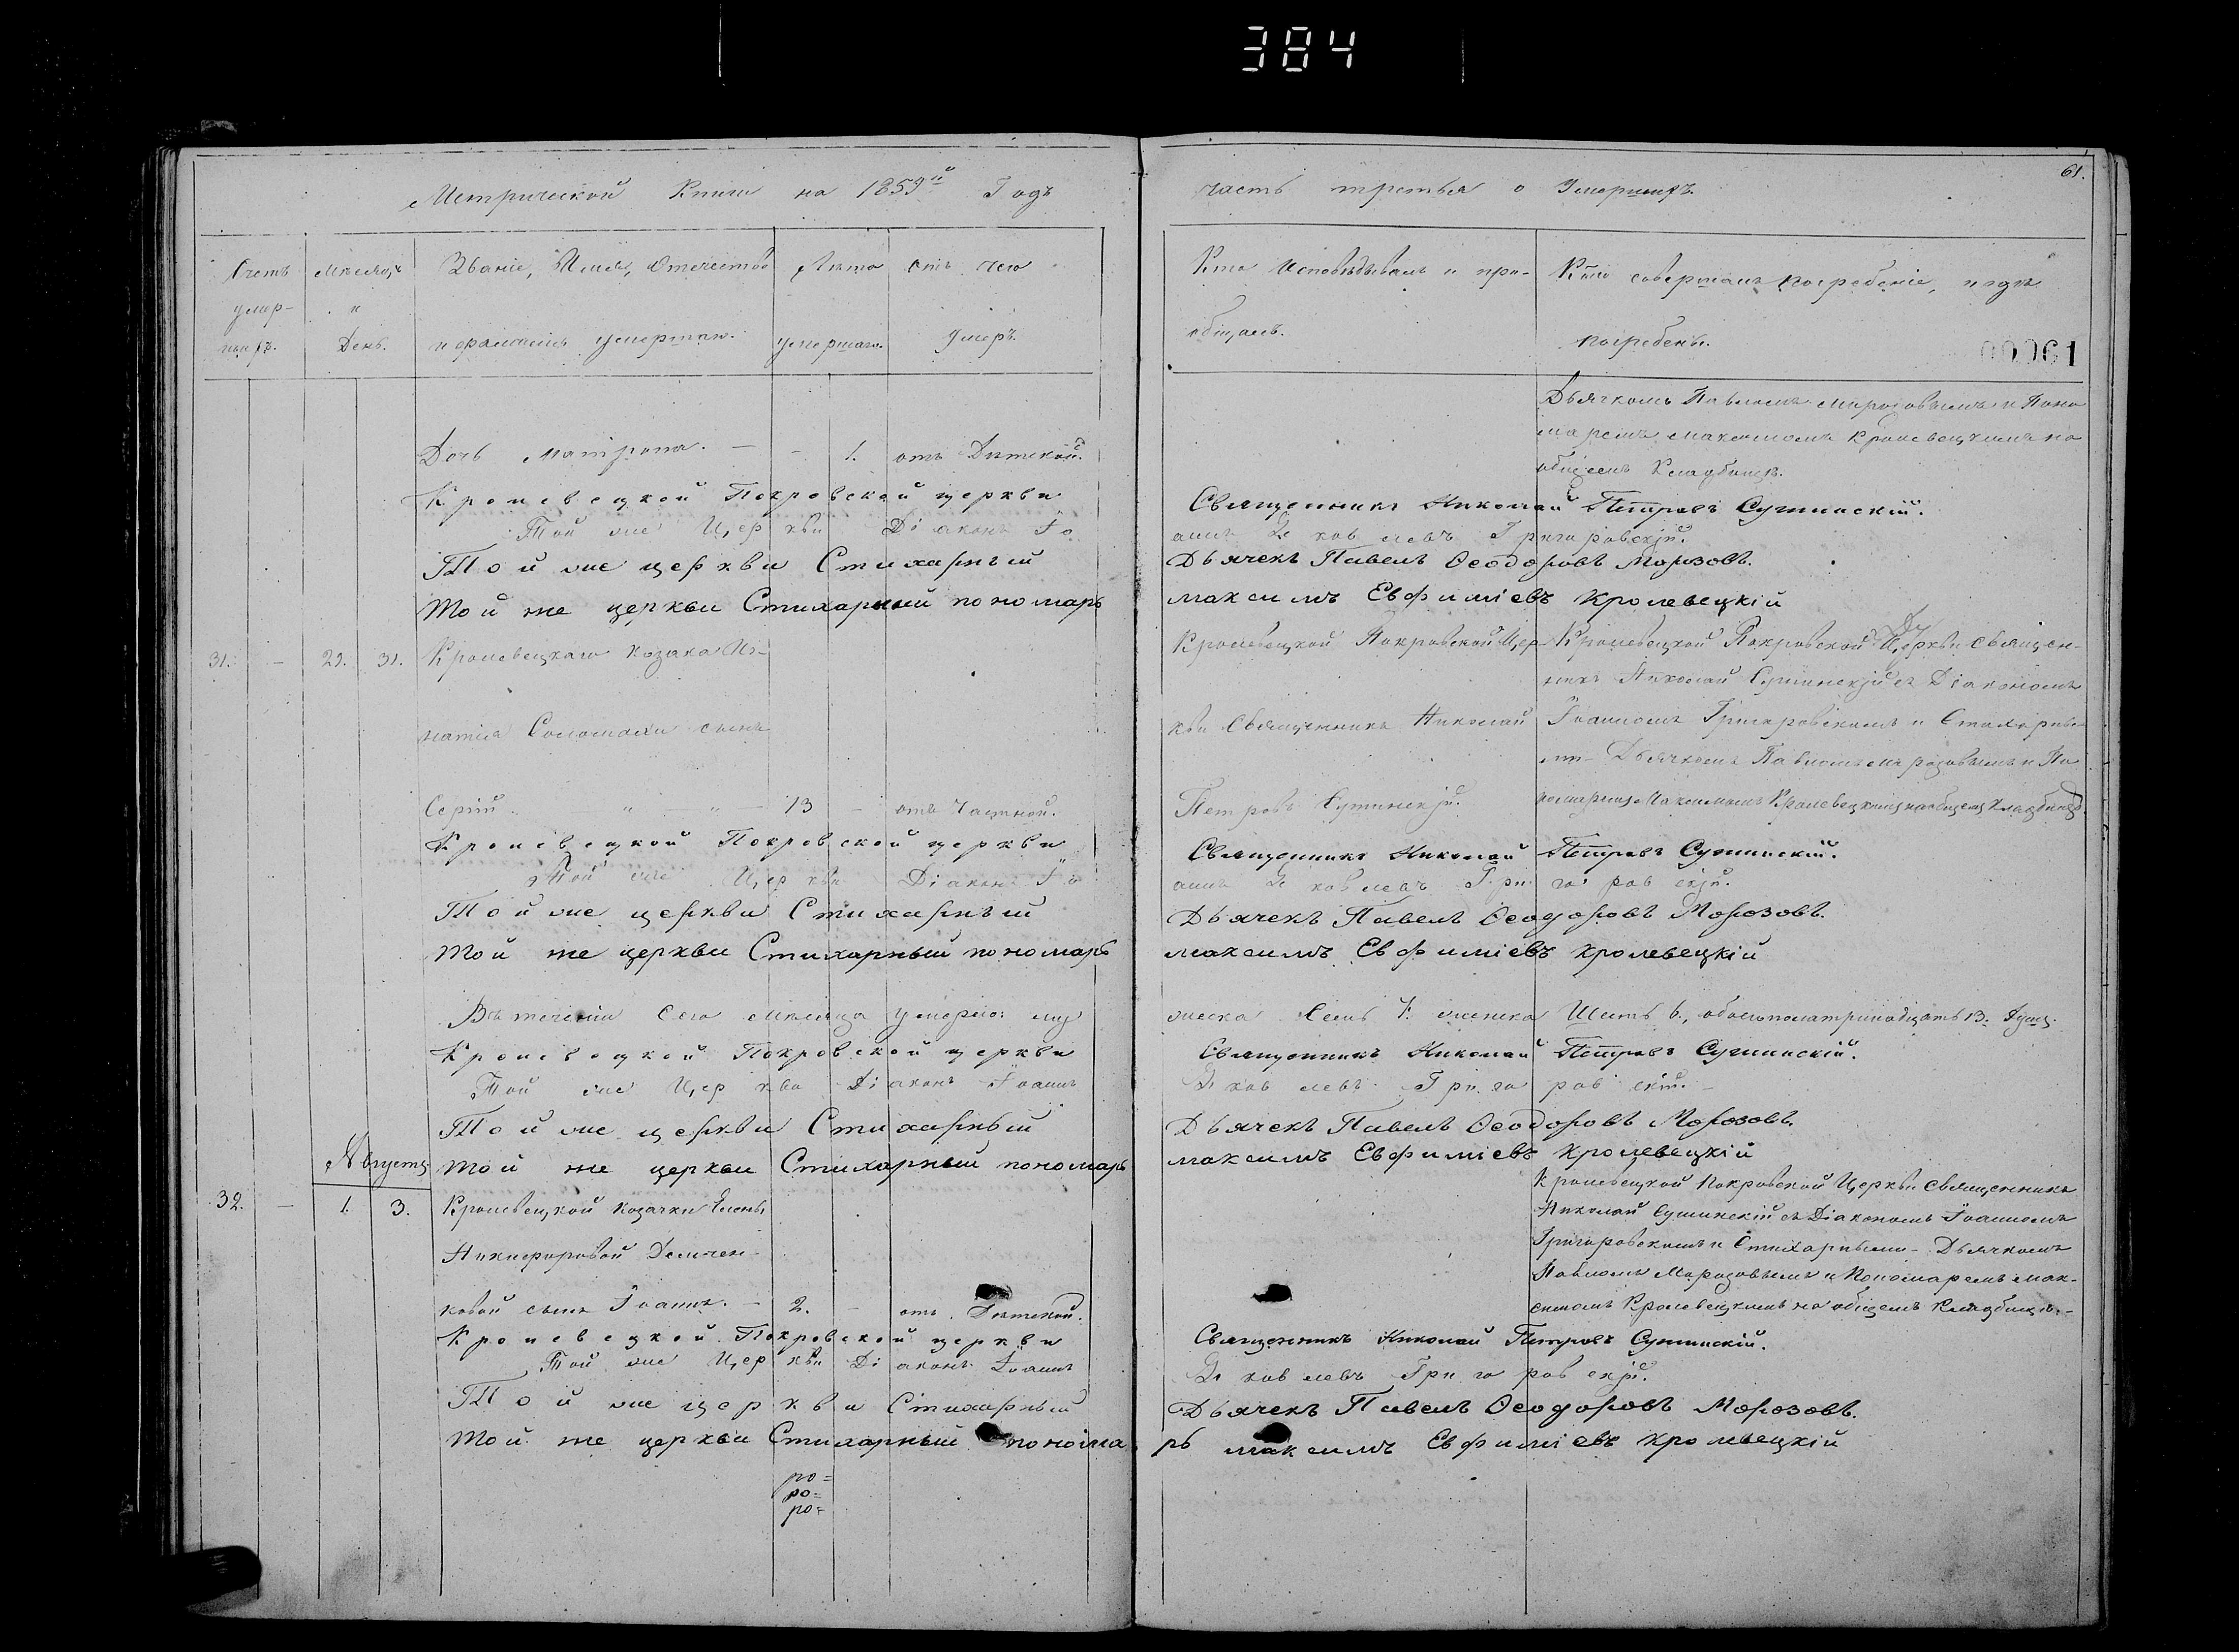 384
61.
Метрической Книги на 1859й Годъ
часть третья о Умершихъ.
Счетъ умер- шихъ.
Мѣсяцъ и День.
Званіе, Имя, Отчество и фамилія умершаго.
Лѣта умершаго.
Отъ чего умеръ.
Кто Исповѣдывалъ и прі- общалъ.
Кто совершалъ погребеніе, и гдѣ погребенъ.
00061
Дьячкомъ Павломъ Морозовымъ и Поно
маремъ Максимомъ Кролевецкимъ на
общемъ Кладбищѣ.
Дочь Матрона. — - 1. отъ Дѣтской.
Кролевецкой Покровской церкви Священникъ Николай Петровъ Сушинскій.
Той же Церкви Діаконъ Іоаннъ Яковлевъ Григоровскій.
Той же церкви Стихарный Дьячекъ Павелъ Ѳеодоровъ Морозовъ.
Той же церкви Стихарный пономарь Максимъ Евфиміевъ Кролевецкій
31. — 29. 31. Кролевецкаго козака Иг-
натія Соломахи сынъ
Сергій " " — 13 — отъ Чахтной.
Кролевецкой Покровской Цер-
кви Священникъ Николай
Петровъ Сушинскій.
Кролевецкой Покровской Церкви Священ-
никъ Николай Сушинскій съ Діакономъ
Іоанномъ Григоровскимъ и Стихарны-
ми — Дьячкомъ Павломъ Морозовымъ и По
номаремъ Максимомъ Кролевецкимъ на общемъ Кладбищѣ.
Кролевецкой Покровской церкви Священникъ Николай Петровъ Сушинскій.
Той же Церкви Діаконъ Іоаннъ Яковлевъ Григоровскій.
Той же церкви Стихарный Дьячекъ Павелъ Ѳеодоровъ Морозовъ.
Той же церкви Стихарный пономарь Максимъ Евфиміевъ Кролевецкій
Въ теченіи Сего мѣсяца умерло: мужеска Семь 7. женска Шесть 6., обоего пола тринадцать 13. душъ.
Кролевецкой Покровской церкви Священникъ Николай Петровъ Сушинскій.
Той же Церкви Діаконъ Іоаннъ Яковлевъ Григоровскій.
Той же церкви Стихарный Дьячекъ Павелъ Ѳеодоровъ Морозовъ.
Той же церкви Стихарный пономарь Максимъ Евфиміевъ Кролевецкій
Августъ
32. — 1. 3. Кролевецкой козачки Елены
Никифоровой Демчен-
ковой сынъ Іоаннъ. — 2. — отъ Дѣтской.
Кролевецкой Покровской Церкви Священникъ
Николай Сушинскій съ Діакономъ Іоанномъ
Григоровскимъ и Стихарными — Дьячкомъ
Павломъ Морозовымъ и Пономаремъ Мак-
симомъ Кролевецкимъ на общемъ Кладбищѣ. —
Кролевецкой Покровской церкви Священникъ Николай Петровъ Сушинскій.
Той же Церкви Діаконъ Іоаннъ Яковлевъ Григоровскій.
Той же церкви Стихарный Дьячекъ Павелъ Ѳеодоровъ Морозовъ.
Той же церкви Стихарный пономарь Максимъ Евфиміевъ Кролевецкій
ро=
ро=
ро=